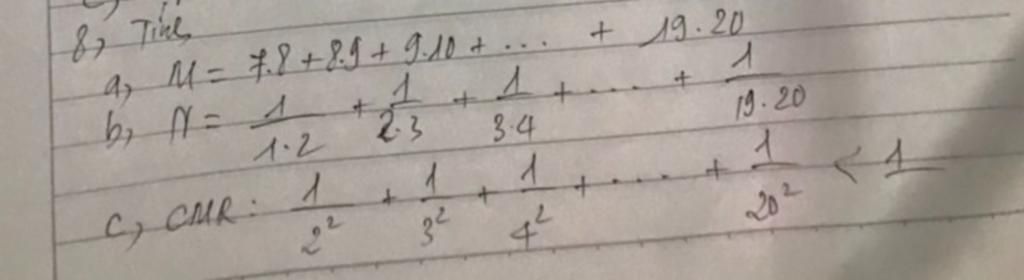 8, Tính
a, M = 7.8 + 8.9 + 9.10 + ... + 19.20
b, N = 1/1.2 + 1/2.3 + 1/3.4 + .... + 1/19.20
c, CMR: 1/2² + 1/3² + 1/4² + .... + 1/20² < 1